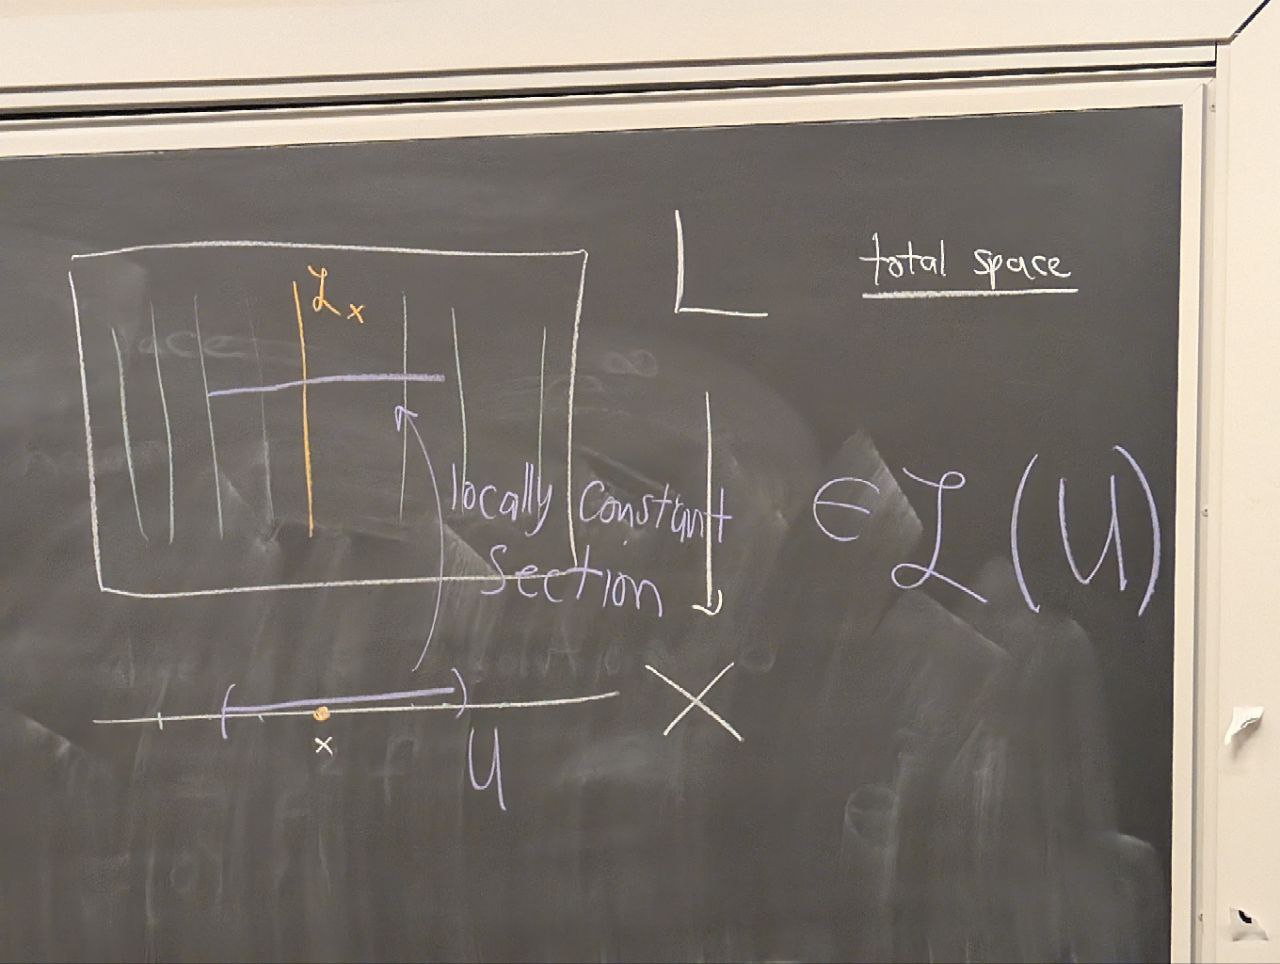 L
total space
ℒₓ
locally constant
section
∈ ℒ(U)
X
x
U